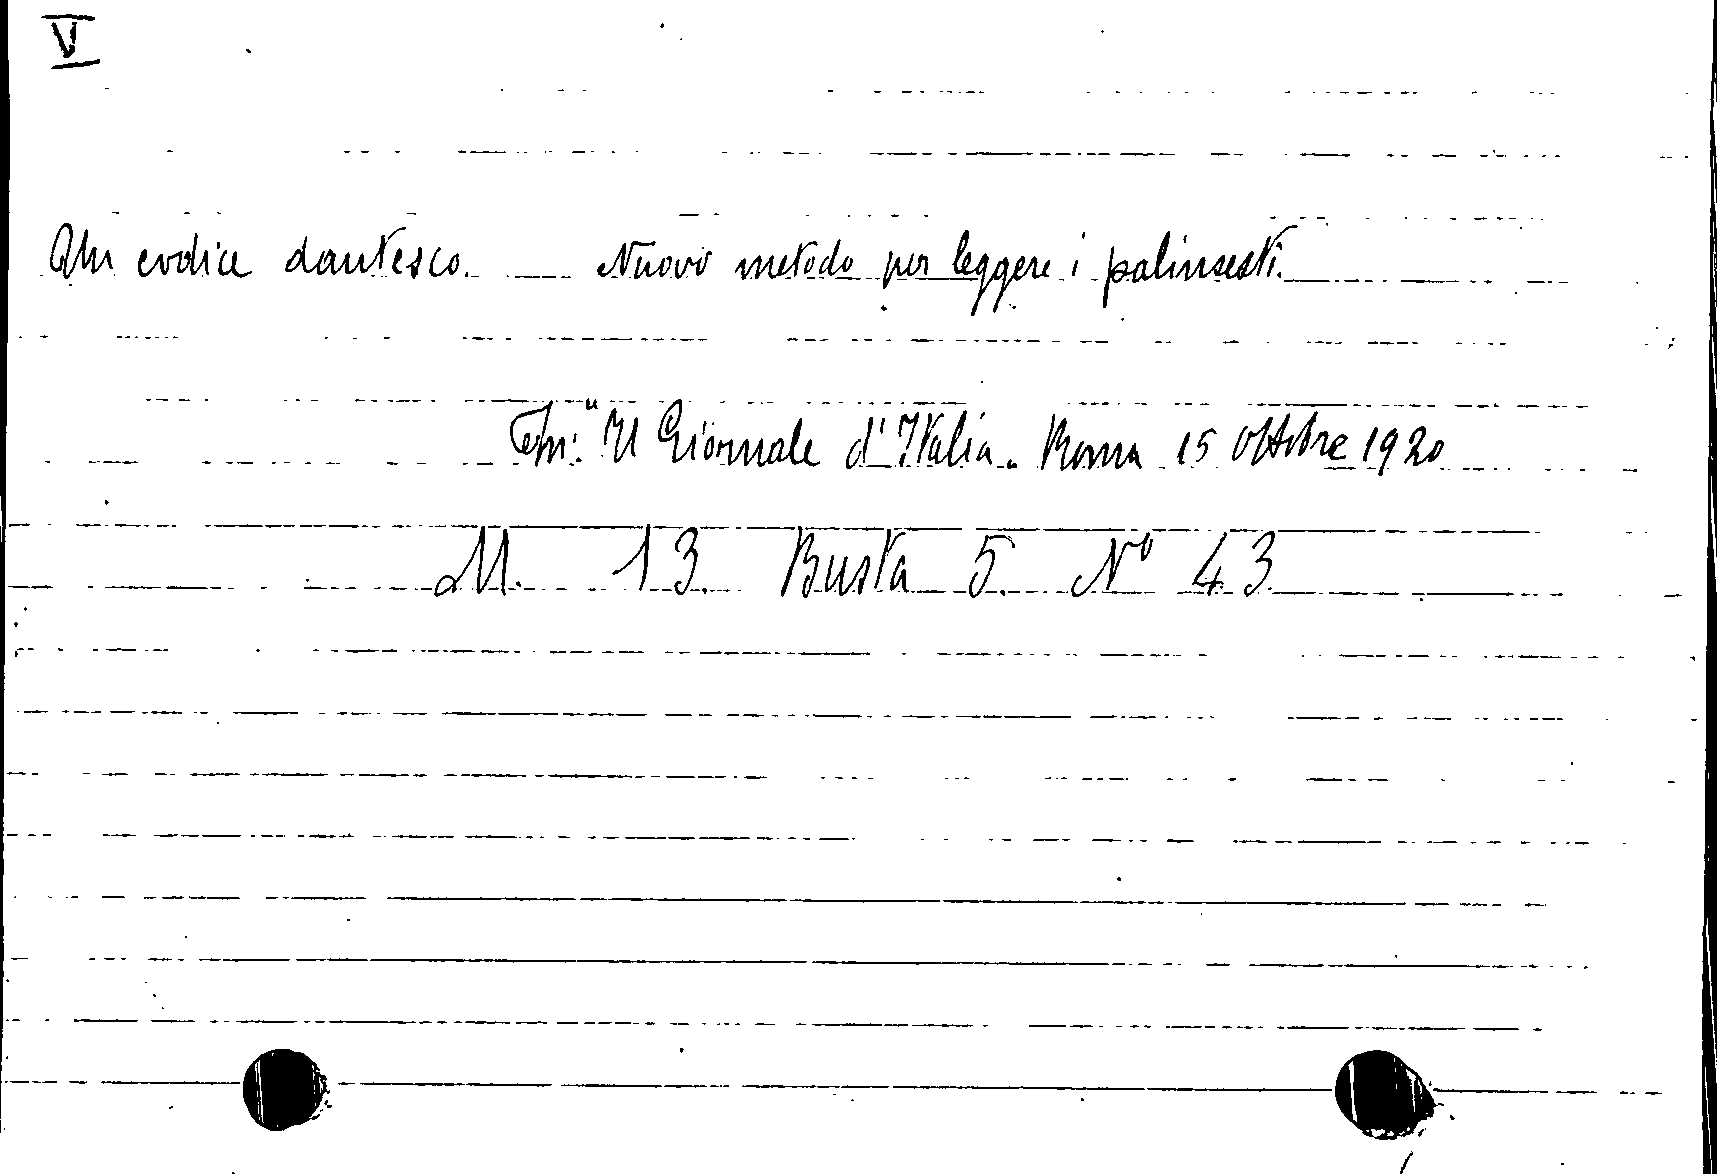 V
Un codice dantesco. Nuovo metodo per leggere i palinsesti.
In: "Il Giornale d'Italia. Roma 15 ottobre 1920
M. 13. Busta 5. Nº 43